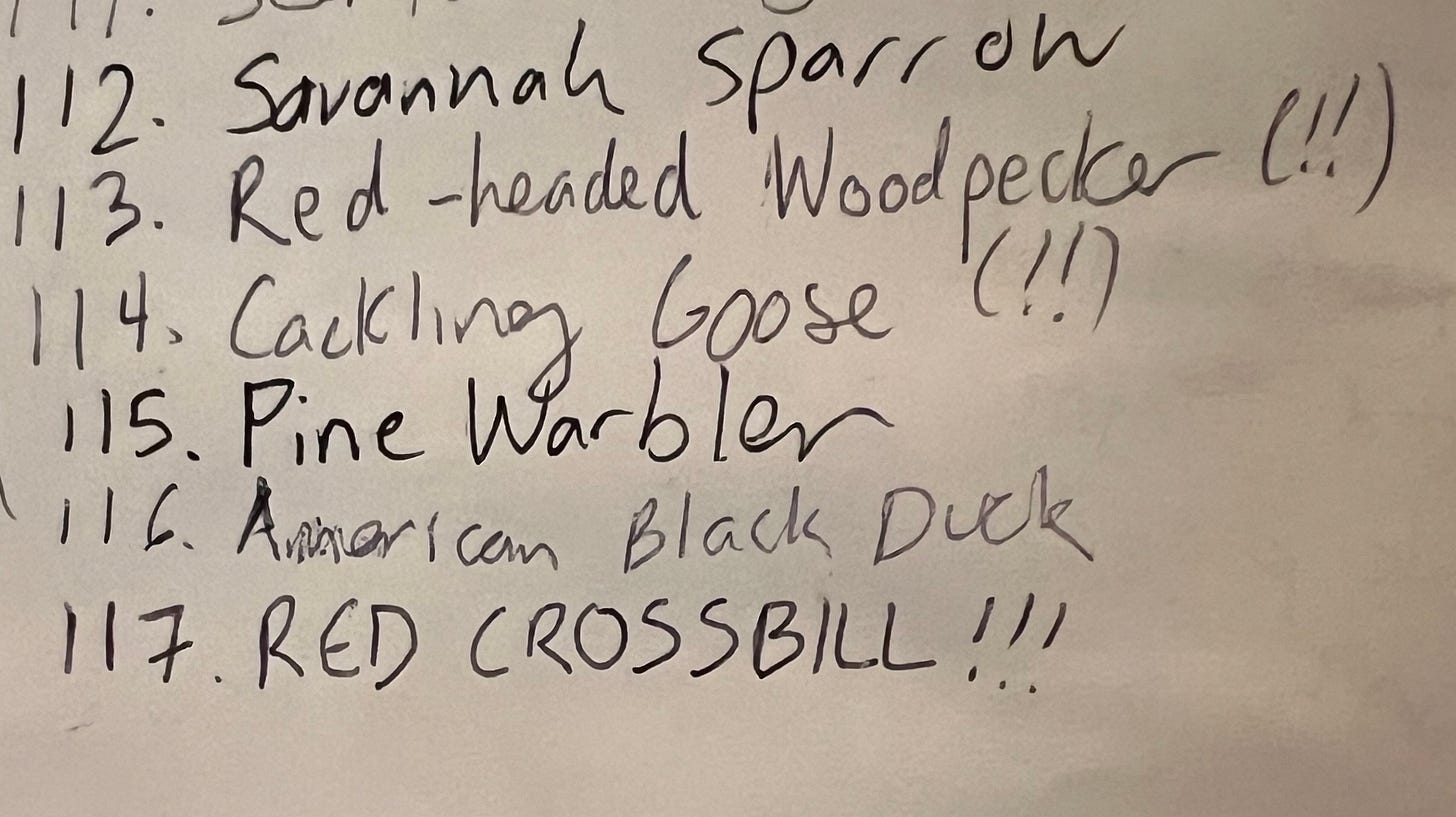 112. Savannah Sparrow
113. Red-headed Woodpecker (!!)
114. Cackling Goose (!!)
115. Pine Warbler
116. American Black Duck
117. RED CROSSBILL!!!